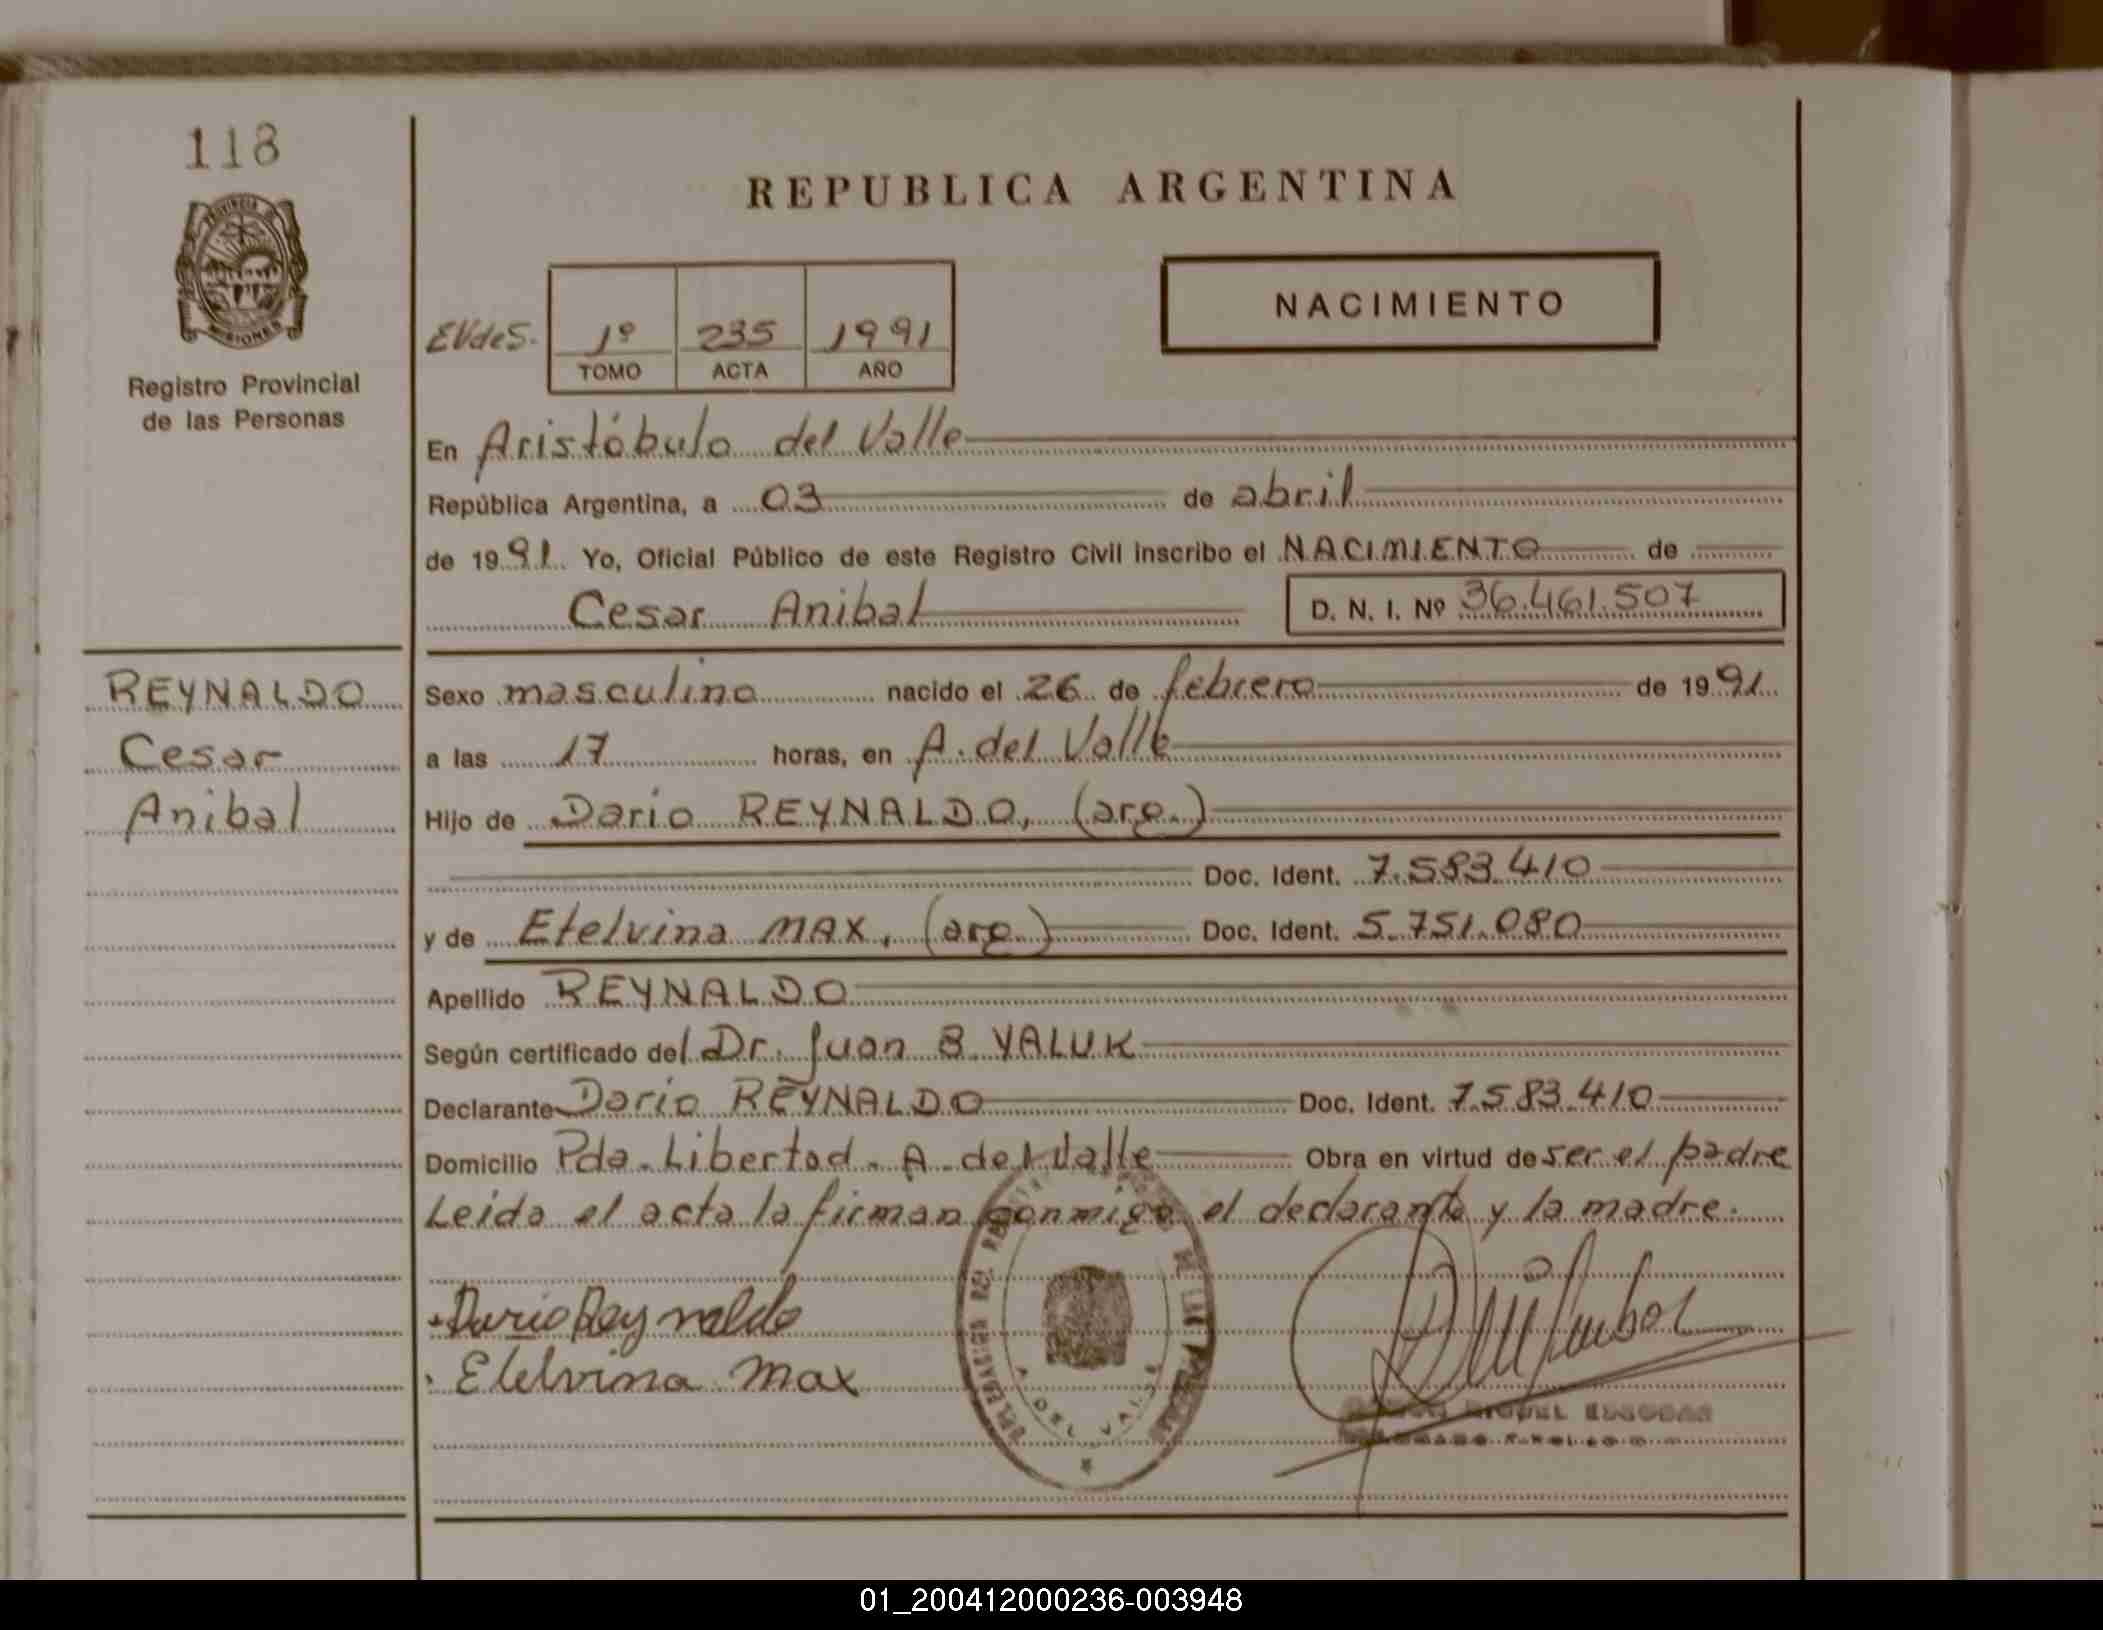 118
PROVINCIA DE
MISIONES
Registro Provincial
de las Personas
REPUBLICA ARGENTINA
NACIMIENTO
EVdeS. 1º 235 1991
TOMO ACTA AÑO
En Aristóbulo del Valle
República Argentina, a 03 de abril
de 1991 Yo, Oficial Público de este Registro Civil inscribo el NACIMIENTO de
Cesar Anibal D. N. I. Nº 36.461.507
REYNALDO
Cesar
Anibal
Sexo masculino nacido el 26 de febrero de 1991
a las 17 horas, en A. del Valle
Hijo de Dario REYNALDO, (arg.)
Doc. Ident. 7.583.410
y de Etelvina MAX, (arg.) Doc. Ident. 5.751.080
Apellido REYNALDO
Según certificado del Dr. Juan B YALUK
Declarante Dario REYNALDO Doc. Ident. 7.583.410
Domicilio Pda. Libertad. A. del Valle Obra en virtud de ser el padre
Leida el acta la firman conmigo el declarante y la madre.
Dario Reynaldo
Etelvina Max
DELEGACION DEL REGISTRO DE LAS
A. DEL VALLE
MIGUEL ESCOBAR
01_200412000236-003948